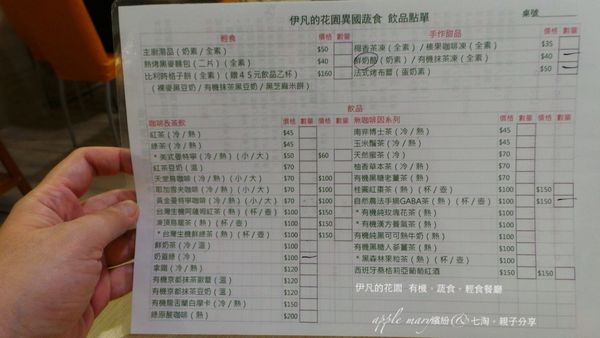 伊凡的花園異國蔬食 飲品點單
桌號
輕食 價格 數量
主廚湯品(奶素/全素) $50
熱烤黑麥麵包(二片)(全素) $40
比利時格子餅(全素)(贈45元飲品乙杯) $160
(裸麥黑豆奶/有機抹茶黑豆奶/黑芝麻米餅)
手作甜品 價格 數量
椰香茶凍(全素)/榛果咖啡凍(全素) $35
鮮奶酪(奶素)/有機抹茶凍(全素) $40
法式烤布蕾(蛋奶素) $50
飲品
咖啡&茶飲 價格 數量 價格 數量
紅茶(冷/熱) $45
綠茶(冷/熱) $45
*美式曼特寧(冷/熱)(小/大) $50 $60
紅茶豆奶(溫) $70
天堂鳥咖啡(冷/熱)(小/大) $70 $100
耶加雪夫咖啡(冷/熱)(小/大) $70 $100
黃金曼特寧咖啡(冷/熱)(小/大) $70 $100
台灣生機阿薩姆紅茶(熱)(杯/壺) $100 $100
凍頂烏龍茶(熱)(杯/壺) $100 $100
*台灣生機鮮綠茶(熱)(杯/壺) $100 $100
鮮奶茶(冷/溫) $100
奶蓋綠(冷) $100
拿鐵(冷/熱) $120
有機京都抹茶歐蕾(溫) $120
有機京都抹茶豆奶(溫) $120
有機龍舌蘭白摩卡(冷/熱) $150
綠原酸咖啡(熱) $200
無咖啡因系列 價格 數量 價格 數量
南非博士茶(冷/熱) $45
玉米鬚茶(冷/熱) $45
天然蜜茶(冷) $70
柚香草本茶(冷/熱) $70
有機黑糖老薑茶(熱) $70
桂圓紅棗茶(熱)(杯/壺) $100 $150
自然農法手摘GABA茶(熱)(杯/壺) $100 $150
*有機純玫瑰花茶(熱) $100
*有機漢方養氣茶(熱) $100
有機純黑可可熱牛奶(熱) $100
有機黑糖人蔘薑茶(熱) $100
*黑森林果粒茶(熱)(杯/壺) $100 $150
西班牙桑格莉亞葡萄紅酒 $150 $150
伊凡的花園 有機。蔬食。輕食餐廳
apple mary繽紛@七淘。親子分享